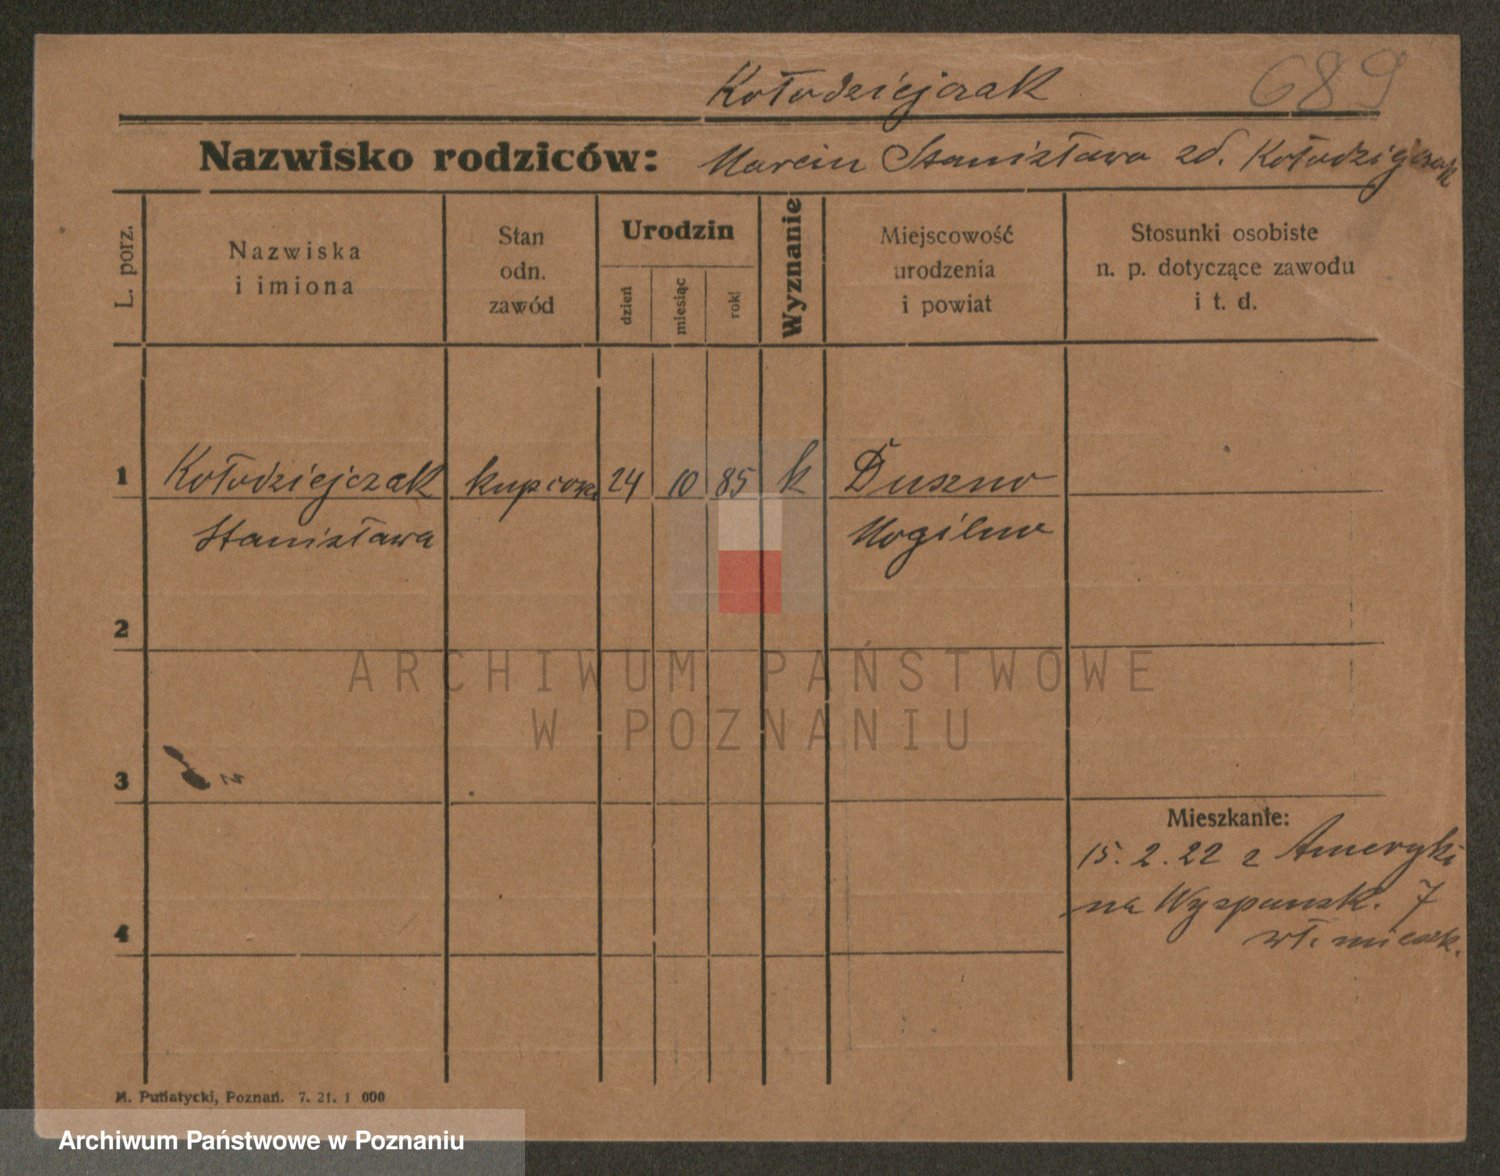 689
Kołodziejczak
Nazwisko rodziców: Marcin Stanisława zd. Kołodziejczak
L. porz.
Nazwiska
i imiona
Stan
odn.
zawód
Urodzin
dzień
miesiąc
rok
Wyznanie
Miejscowość
urodzenia
i powiat
Stosunki osobiste
n. p. dotyczące zawodu
i t. d.
1 Kołodziejczak 24 10 85 k Duszno
Stanisława Mogilno
2
3
Mieszkanie:
15. 2. 22 z Ameryki
na Wyspańsk. 7
wł. mieszk.
4
M. Putiatycki, Poznań. 7. 21. 1 000
ARCHIWUM PAŃSTWOWE
W POZNANIU
Archiwum Państwowe w Poznaniu